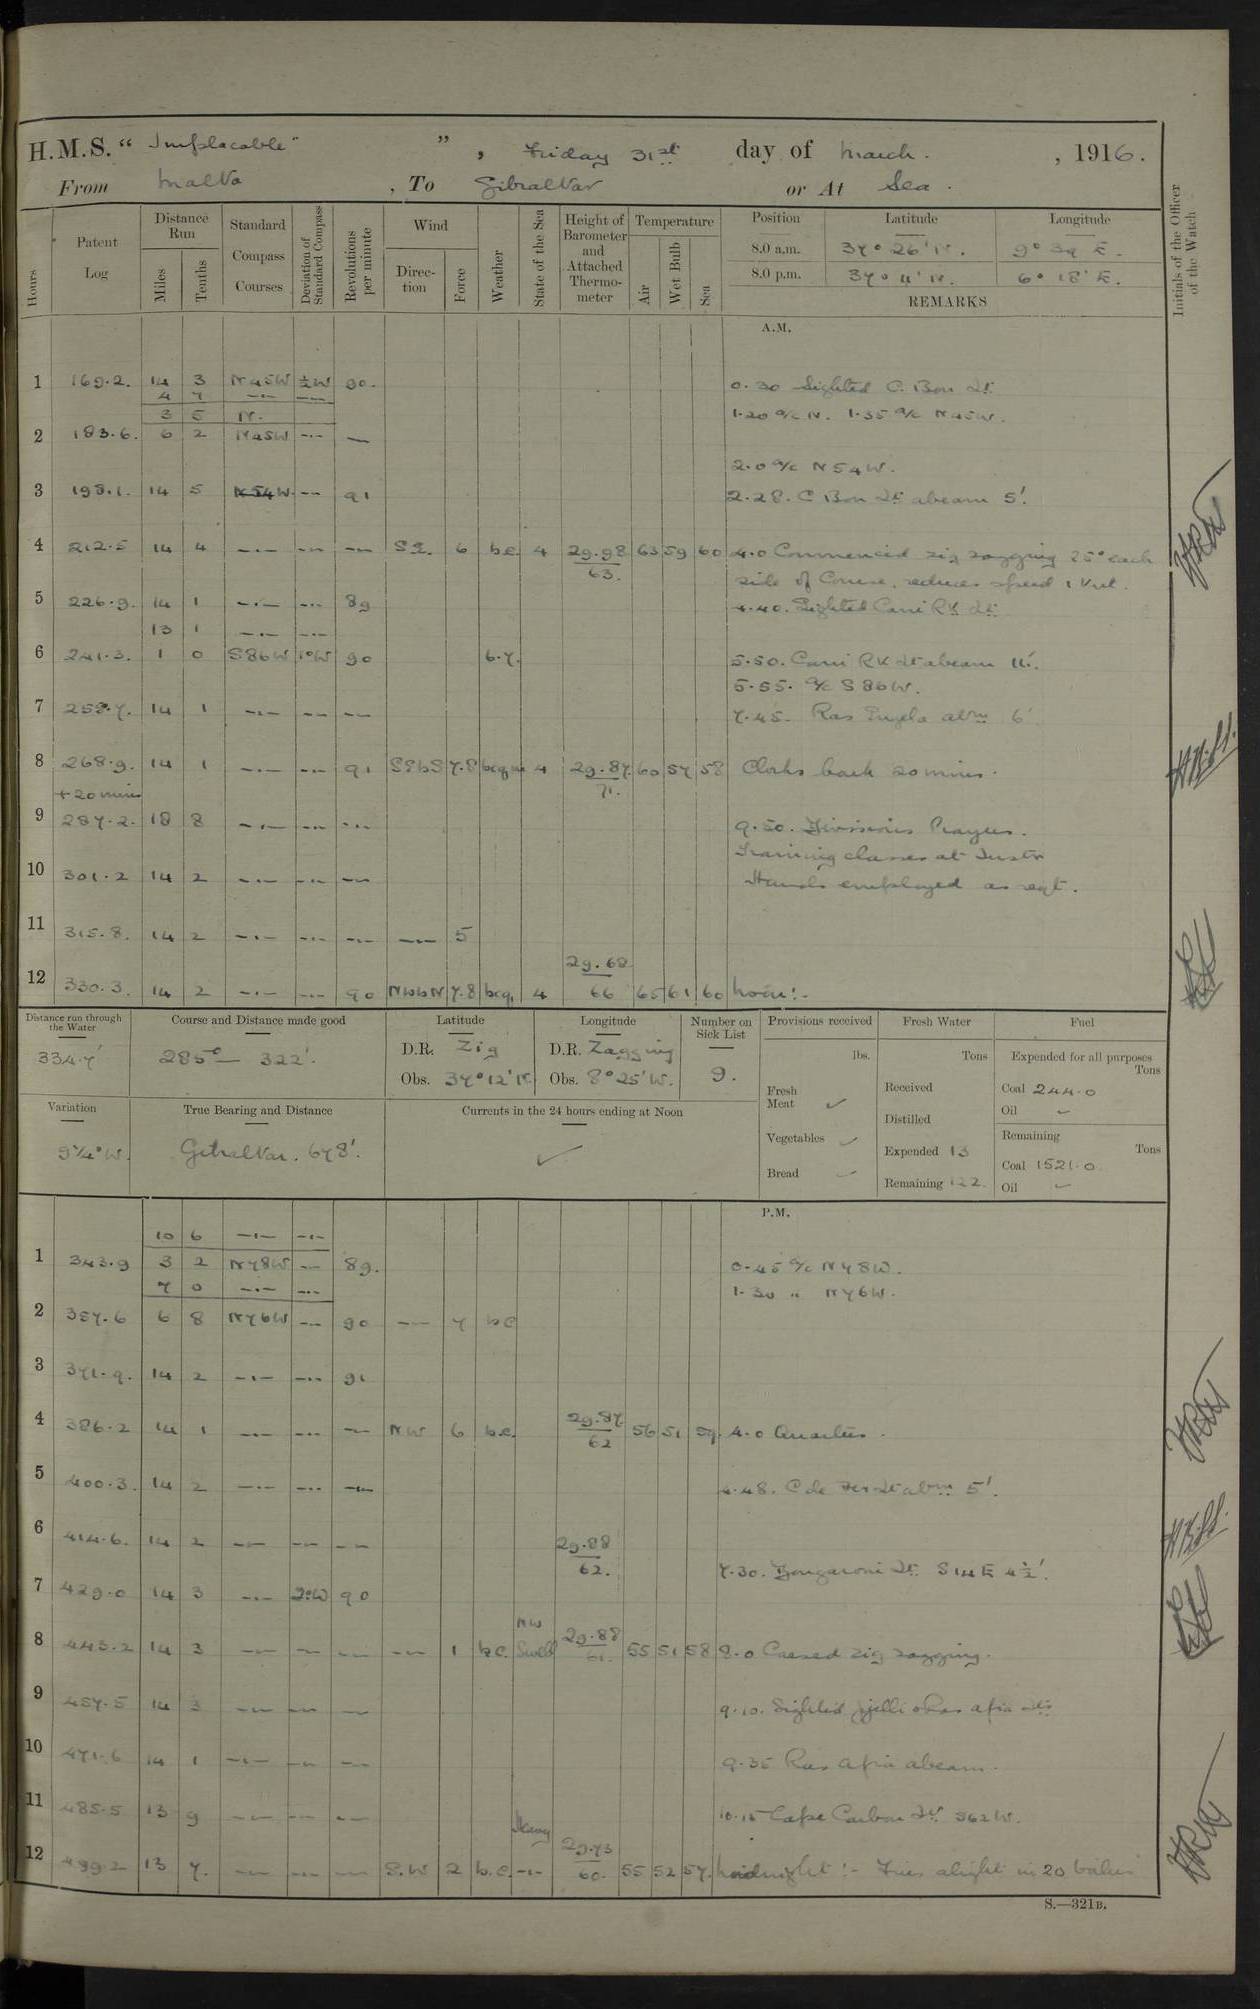 H.M.S. " Implacable " , Friday 31st day of March . , 1916.
From Malta , To Gibraltar or At Sea .
Hours
Patent Log
Distance Run
Miles
Tenths
Standard Compass Courses
Deviation of Standard Compass
Revolutions per minute
Wind
Direction
Force
Weather
State of the Sea
Height of Barometer and Attached Thermometer
Temperature
Air
Wet Bulb
Sea
Position Latitude Longitude
8.0 a.m. 37° 26' N. 9° 39 E.
8.0 p.m. 37° 4' N. 6° 18' E.
REMARKS
Initials of the Officer of the Watch
A.M.
1 169.2. 14 3 N45W ½W 90. 0.30 Sighted C. Bon Lt.
4 7 —.— —.—
3 5 N. 1.20 a/c N. 1.35 a/c N45W.
2 183.6. 6 2 N45W —.— —
2.0 a/c N54W.
3 198.1. 14 5 N54W —.— 91 2.28. C Bon Lt abeam 5'.
4 212.5 14 4 —.— —.— —.— SE. 6 b.c. 4 29.98 63. 63 59 60 4.0 Commenced zig zagging 25° each
side of Course, reduced speed 1 Knt.
5 226.9. 14 1 —.— —.— 89 4.40. Sighted Cani Rk Lt.
13 1 —.— —.—
6 241.3. 1 0 S86W 1°W 90 6.7. 5.50. Cani Rk Lt abeam 11'.
5.55. a/c S86W.
7 258.7. 14 1 —.— —.— —.— 7.45. Ras Engela abm 6'
8 268.9. 14 1 —.— —.— 91 SEbS 7.8 bcqm 4 29.87 71. 60 57 58 Clocks back 20 mins.
+20 mins
9 287.2. 18 8 —.— —.— —.— 9.50. Divisions Prayers.
Training classes at Instn
10 301.2 14 2 —.— —.— —.— Hands employed as reqt.
11 315.8. 14 2 —.— —.— —.— —.— 5
12 330.3. 14 2 —.— —.— 90 NWbN 7.8 bcq. 4 29.68 66 65 61 60 Noon:-
Distance run through the Water
334.7'
Course and Distance made good
285° — 322'.
Latitude
D.R. Zig
Obs. 37° 12' N
Longitude
D.R. Zagging
Obs. 8° 25' W.
Number on Sick List
9.
Provisions received
lbs.
Fresh Meat ✓
Vegetables ✓
Bread ✓
Fresh Water
Tons
Received
Distilled
Expended 13
Remaining 122.
Fuel
Expended for all purposes
Tons
Coal 244.0
Oil ✓
Remaining
Tons
Coal 1521.0
Oil ✓
Variation
9¼°W.
True Bearing and Distance
Gibraltar. 678'.
Currents in the 24 hours ending at Noon
✓
P.M.
10 6 —.— —.—
1 343.9 3 2 N78W — 89. 0.45 a/c N78W.
7 0 —.— —.— 1.30 " N76W.
2 357.6 6 8 N76W —.— 90 —.— 7 bc
3 371.9. 14 2 —.— —.— 91
4 386.2 14 1 —.— —.— —.— NW 6 b.c. 29.87 62 56 51 59. 4.0 Quarters.
5 400.3. 14 2 —.— —.— —.— 4.48. C de Fer Lt abm 5'.
6 414.6. 14 2 —.— —.— —.— 29.88 62.
7.30. Lt. S14E 4½'.
7 429.0 14 3 —.— 2°W 90
8 443.2 14 3 —.— —.— —.— —.— 1 b.c. NW Swell 29.88 61. 55 51 58 8.0 Ceased zig zagging.
9 457.5 14 3 —.— —.— —.— 9.10. Sighted Jijelli & Ras Afia Lts
10 471.6 14 1 —.— —.— —.— 9.35 Ras Afia abeam.
11 485.5 13 9 —.— —.— —.— 10.15 Cape Carbon Lt. S62W.
12 499.2 13 7. —.— —.— —.— S.W 2 b.c. Heavy —.— 29.73 60. 55 52 57. Midnight:- Fires alight in 20 boilers
S.—321B.